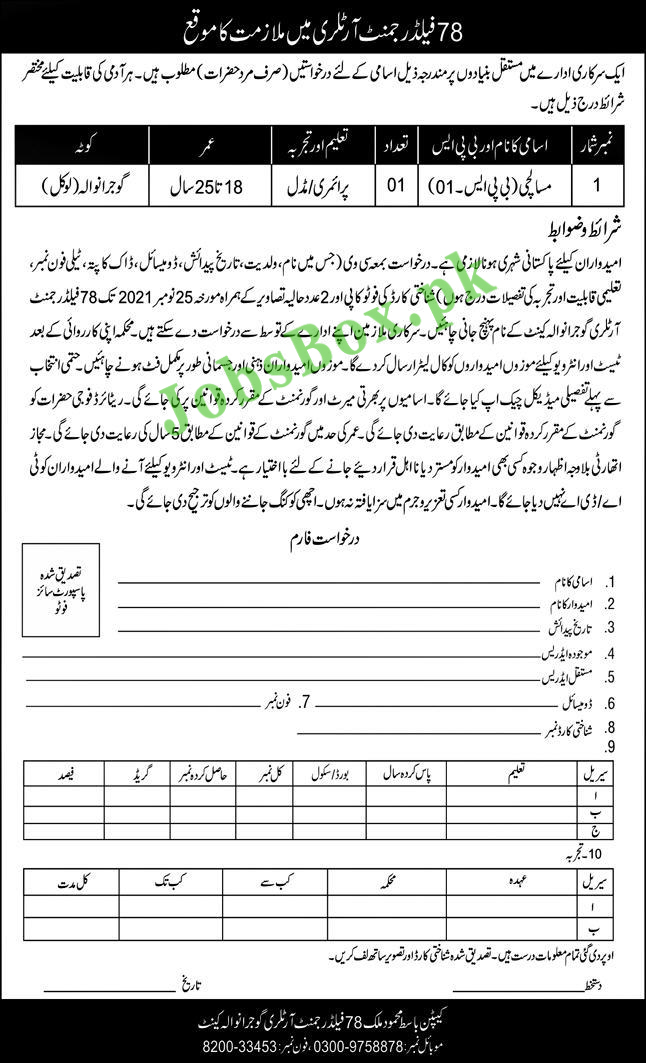 78 فیلڈ رجمنٹ آرٹلری میں ملازمت کا موقع
ایک سرکاری ادارے میں مستقل بنیادوں پر مندرجہ ذیل اسامی کے لئے درخواستیں (صرف مرد حضرات) مطلوب ہیں۔ ہر آدمی کی قابلیت کیلئے مختصر
شرائط درج ذیل ہیں۔
نمبر شمار اسامی کا نام اور بی پی ایس تعداد تعلیم اور تجربہ عمر کوٹہ
1 مسالچی (بی پی ایس۔01) 01 پرائمری/مڈل 18 تا 25 سال گوجرانوالہ (لوکل)
شرائط و ضوابط
امیدواران کیلئے پاکستانی شہری ہونا لازمی ہے۔ درخواست بمعہ سی وی (جس میں نام، ولدیت، تاریخ پیدائش، ڈومیسائل، ڈاک کا پتہ، ٹیلی فون نمبر،
تعلیمی قابلیت اور تجربہ کی تفصیلات درج ہوں) شناختی کارڈ کی فوٹو کاپی اور 2 عدد حالیہ تصاویر کے ہمراہ مورخہ 25 نومبر 2021 تک 78 فیلڈ رجمنٹ
آرٹلری گوجرانوالہ کینٹ کے نام پہنچ جانی چاہئیں۔ سرکاری ملازمین اپنے ادارے کے توسط سے درخواست دے سکتے ہیں۔ محکمہ اپنی کارروائی کے بعد
ٹیسٹ اور انٹرویو کیلئے موزوں امیدواروں کو کال لیٹر ارسال کر دے گا۔ موزوں امیدواران ذہنی اور جسمانی طور پر مکمل فٹ ہونے چاہئیں۔ حتمی انتخاب
سے پہلے تفصیلی میڈیکل چیک اپ کیا جائے گا۔ اسامیوں پر بھرتی میرٹ اور گورنمنٹ کے مقرر کردہ قوانین پر کی جائے گی۔ ریٹائرڈ فوجی حضرات کو
گورنمنٹ کے مقرر کردہ قوانین کے مطابق رعایت دی جائے گی۔ عمر کی حد میں گورنمنٹ کے قوانین کے مطابق 5 سال کی رعایت دی جائے گی۔ مجاز
اتھارٹی بلاوجہ اظہار وجوہ کسی بھی امیدوار کو مسترد یا نااہل قرار دیئے جانے کے لئے بااختیار ہے۔ ٹیسٹ اور انٹرویو کیلئے آنے والے امیدواران کو ٹی
اے/ڈی اے نہیں دیا جائے گا۔ امیدوار کسی تعزیر و جرم میں سزا یافتہ نہ ہوں۔ اچھی کوکنگ جاننے والوں کو ترجیح دی جائے گی۔
JobsBox.pk
درخواست فارم
تصدیق شدہ
پاسپورٹ سائز
فوٹو
1. اسامی کا نام
2. امیدوار کا نام
3. تاریخ پیدائش
4. موجودہ ایڈریس
5. مستقل ایڈریس
6. ڈومیسائل 7. فون نمبر
8. شناختی کارڈ نمبر
9.
سیریل تعلیم پاس کردہ سال بورڈ/سکول کل نمبر حاصل کردہ نمبر گریڈ فیصد
ا
ب
ج
10۔ تجربہ
سیریل عہدہ محکمہ کب سے کب تک کل مدت
ا
ب
اوپر دی گئی تمام معلومات درست ہیں۔ تصدیق شدہ شناختی کارڈ اور تصویر ساتھ لف کریں۔
دستخط تاریخ
کیپٹن باسط محمود ملک 78 فیلڈ رجمنٹ آرٹلری گوجرانوالہ کینٹ
موبائل نمبر: 0300-9758878، فون نمبر: 33453-8200